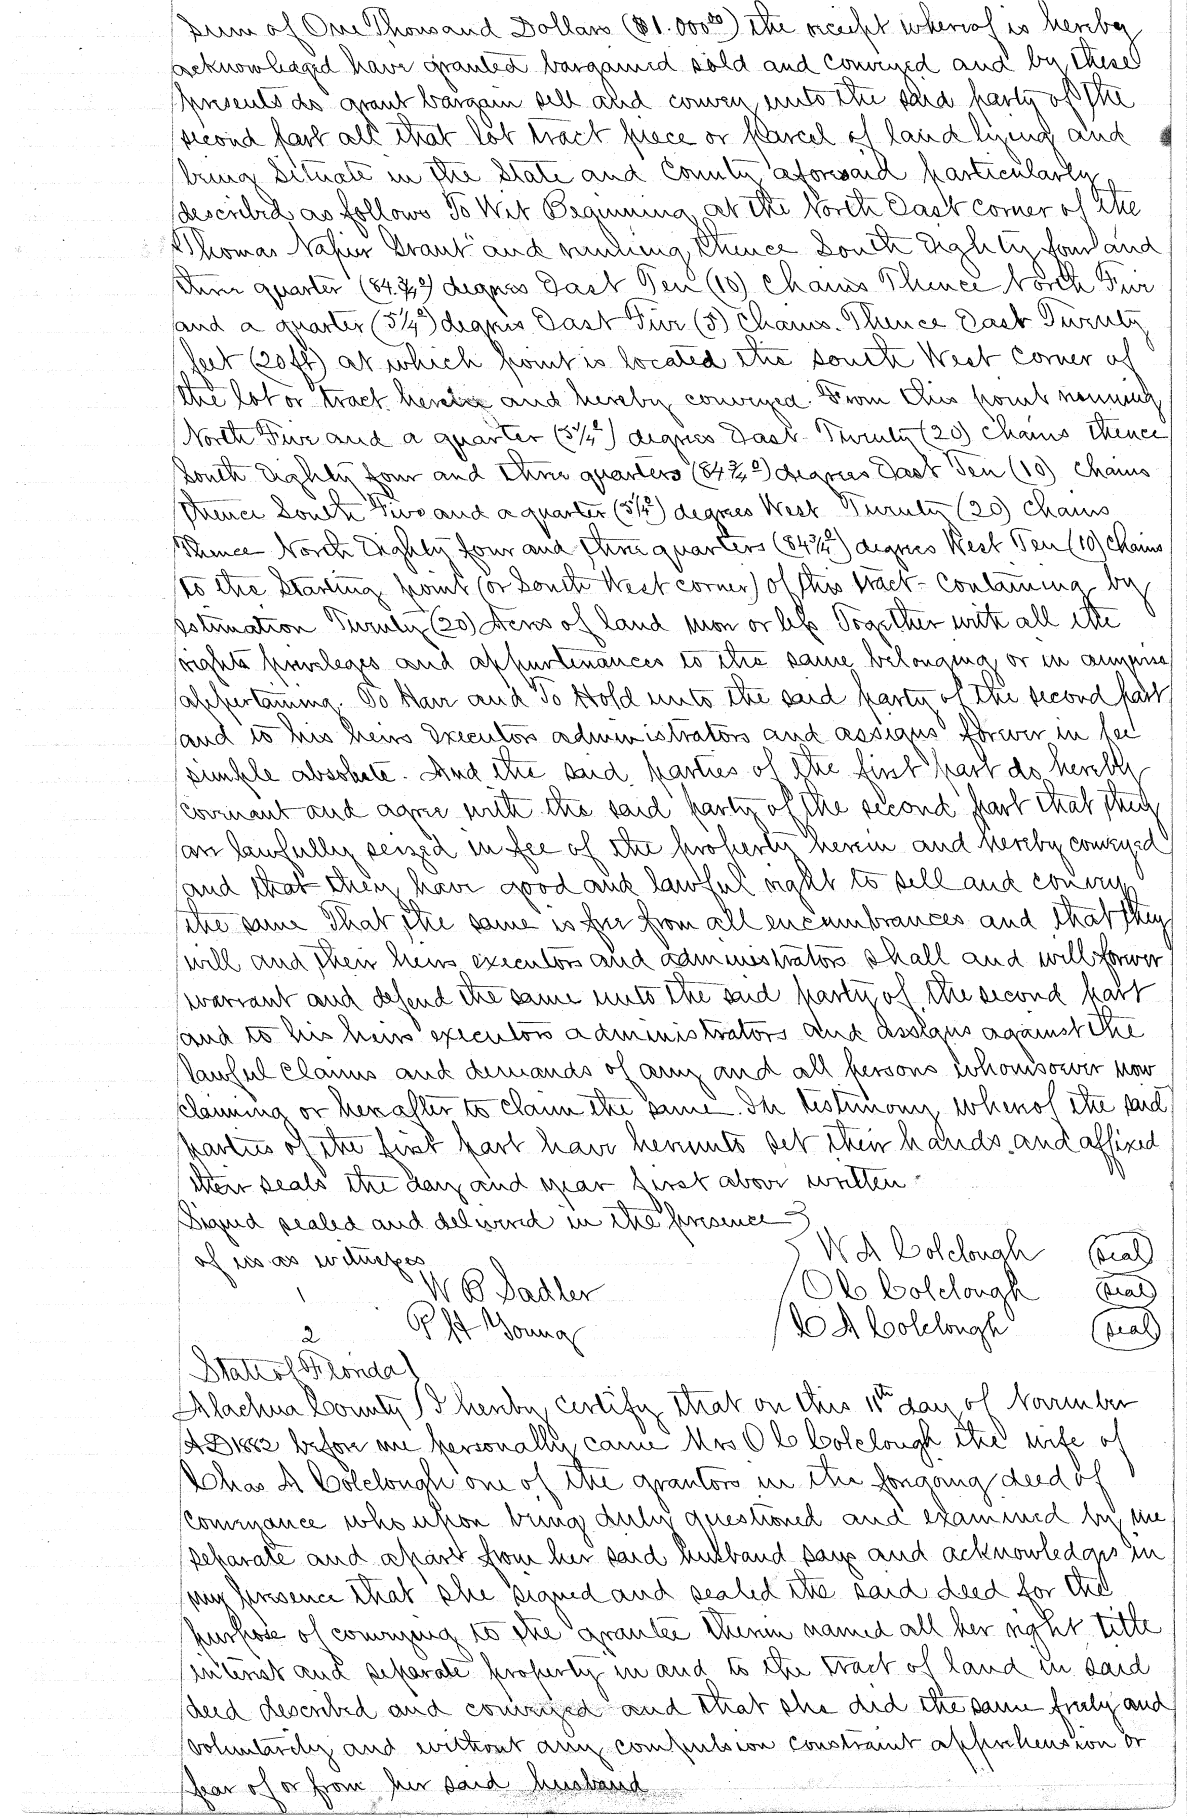 sum of One Thousand Dollars ($1.000⁰⁰) the receipt whereof is hereby
acknowledged have granted bargained sold and conveyed and by these
presents do grant bargain sell and convey unto the said party of the
second part all that lot tract piece or parcel of land lying and
being situate in the State and County aforesaid particularly
described as follows To Wit Beginning at the North East corner of the
"Thomas Napier Grant" and running thence South Eighty four and
three quarter (84.¾°) degrees East Ten (10) chains Thence North Five
and a quarter (5¼°) degrees East Five (5) chains. Thence East Twenty
feet (20 ft) at which point is located the south West corner of
the lot or tract herein and hereby conveyed. From this point running
North Five and a quarter (5¼°) degrees East Twenty (20) chains thence
South Eighty four and three quarters (84¾°) degrees East Ten (10) chains
Thence South Five and a quarter (5¼°) degrees West Twenty (20) chains
Thence North Eighty four and three quarters (84¾°) degrees West Ten (10) chains
to the Starting point (or South West corner) of this tract - containing by
estimation Twenty (20) Acres of land more or less Together with all the
rights privileges and appurtenances to the same belonging or in anywise
appertaining. To Have and To Hold unto the said party of the second part
and to his heirs executors administrators and assigns forever in fee
simple absolute. And the said parties of the first part do hereby
covenant and agree with the said party of the second part that they
are lawfully seized in fee of the property herein and hereby conveyed
and that they have good and lawful right to sell and convey
the same That the same is free from all encumbrances and that they
will and their heirs executors and administrators shall and will forever
warrant and defend the same unto the said party of the second part
and to his heirs executors administrators and assigns against the
lawful claims and demands of any and all persons whomsoever now
claiming or hereafter to claim the same. In testimony whereof the said
parties of the first part have hereunto set their hands and affixed
their seals the day and year first above written.
Signed sealed and delivered in the presence
of us as witnesses
W A Colclough (seal)
1 W B Sadler
O C Colclough (seal)
2 P H Young
C A Colclough (seal)
State of Florida
Alachua County I hereby certify that on this 11th day of November
AD 1882 before me personally came Mrs O C Colclough the wife of
Chas A Colclough one of the grantors in the forgoing deed of
conveyance who upon being duly questioned and examined by me
separate and apart from her said husband says and acknowledges in
my presence that she signed and sealed the said deed for the
purpose of conveying to the grantee therein named all her right title
interest and separate property in and to the tract of land in said
deed described and conveyed and that she did the same freely and
voluntarily and without any compulsion constraint apprehension or
fear of or from her said husband